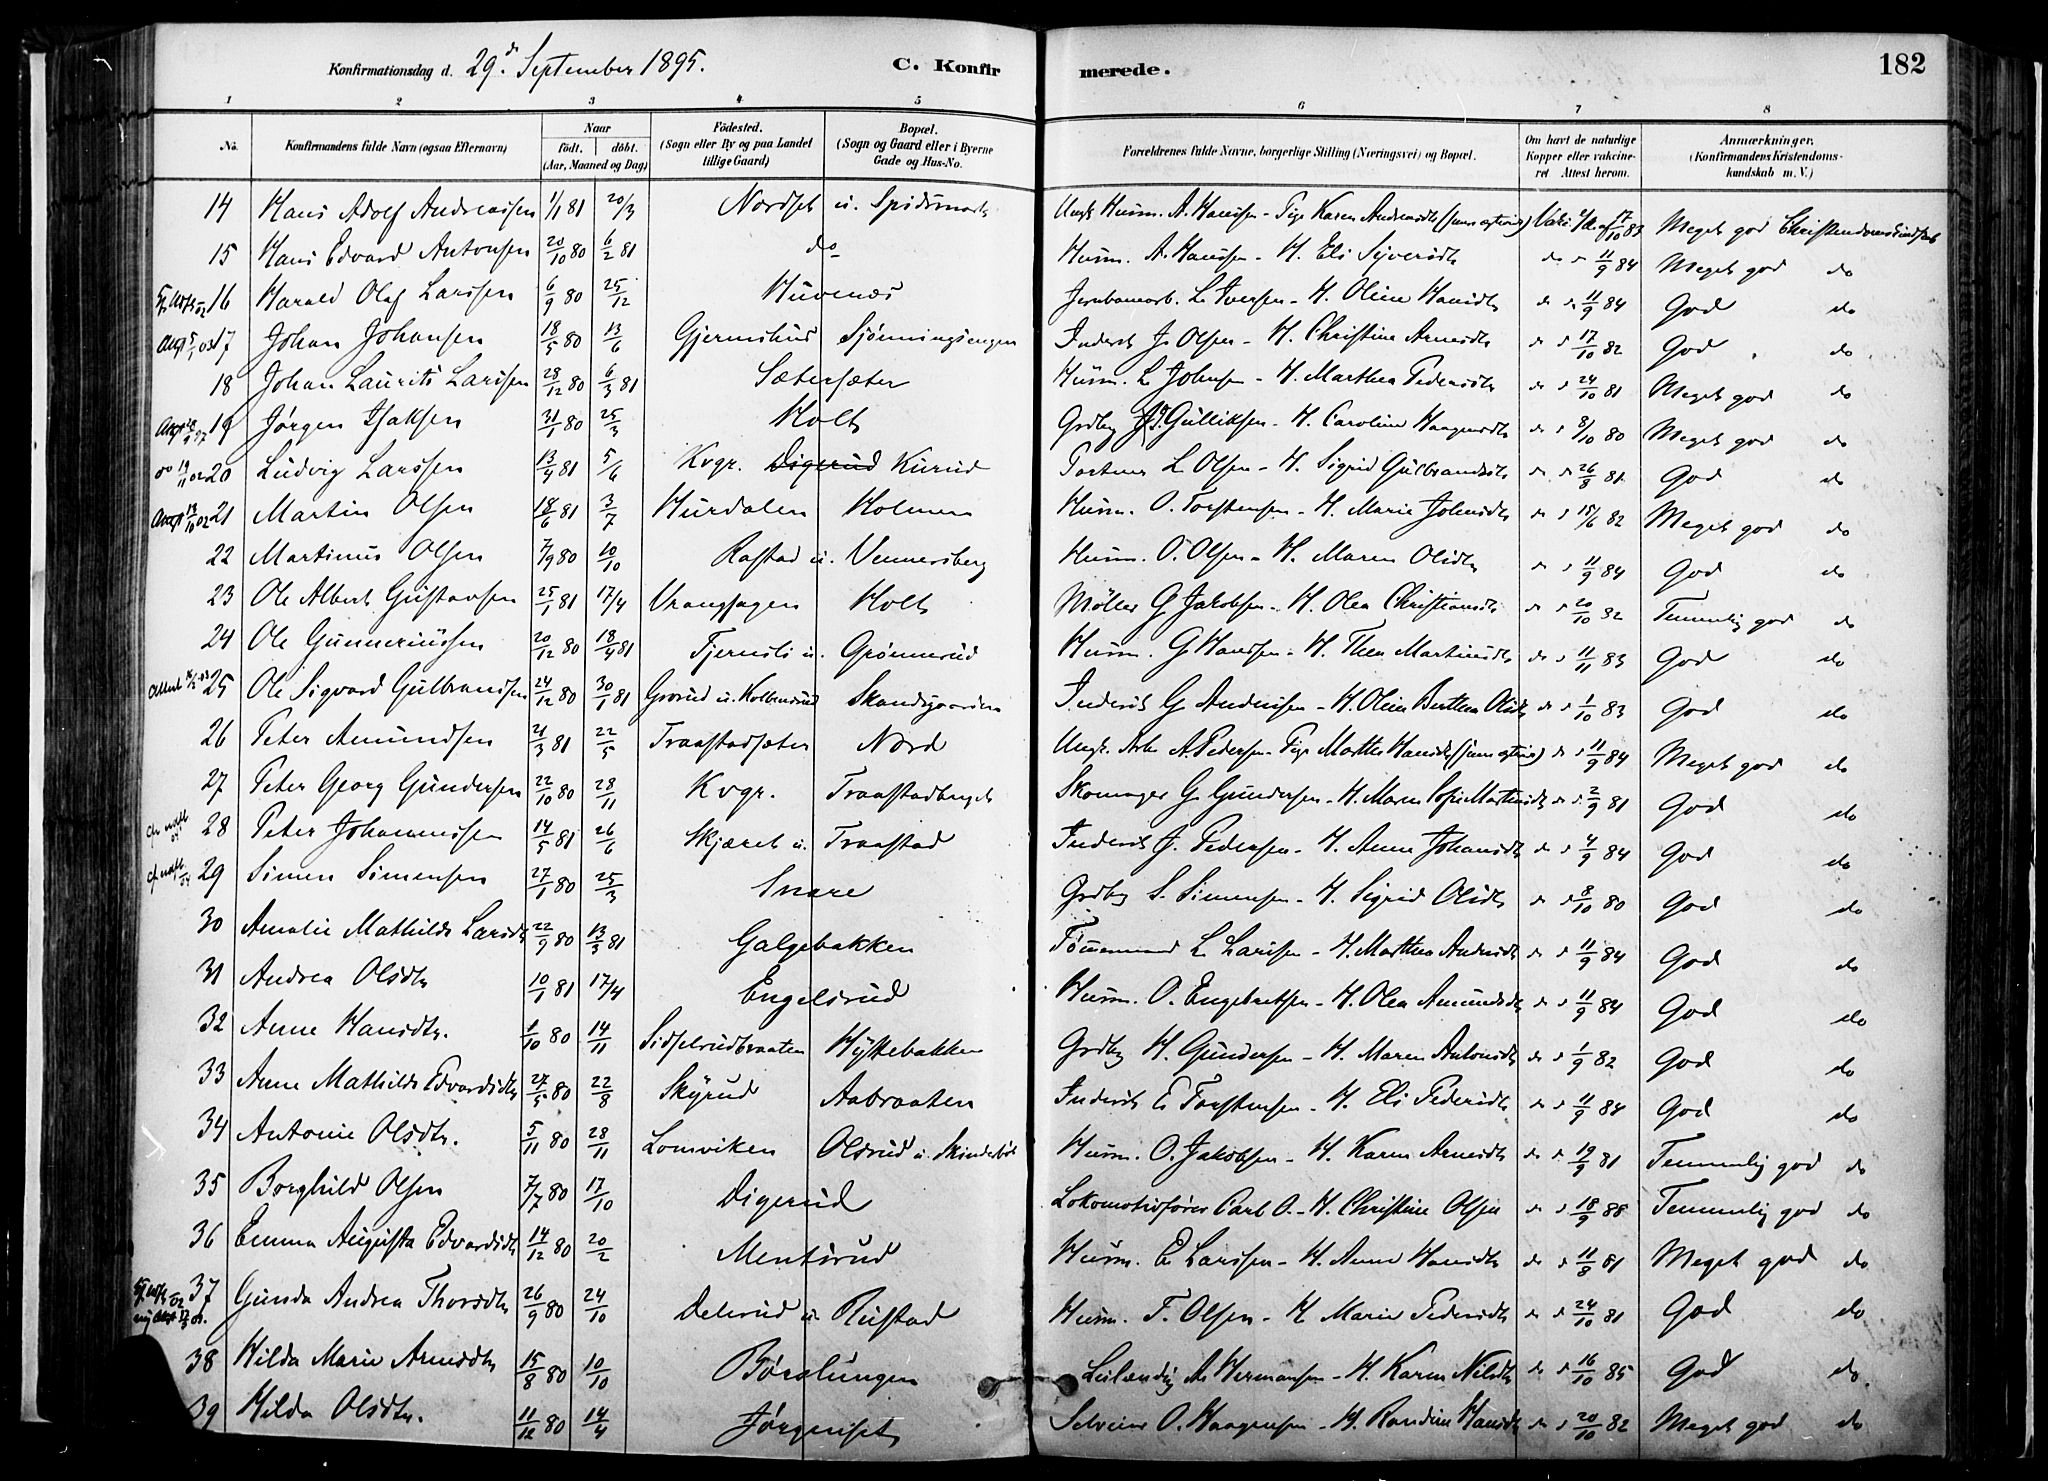 Konfirmationsdag d. 29de September 1895. C. Konfirmerede. 182
1 2 3 4 5 6 7 8
No. Konfirmandens fulde Navn (ogsaa Efternavn) Naar født. døbt. (Aar, Maaned og Dag) Fødested. (Sogn eller By og paa Landet tillige Gaard) Bopæl. (Sogn og Gaard eller i Byerne Gade og Hus-No. Forældrenes fulde Navne, borgerlige Stilling (Næringsvei) og Bopæl. Om havt de naturlige Kopper eller vakcineret Attest herom. Anmærkninger. (Konfirmandens Kristendomskundskab m. V.)
14 Hans Adolf Andreassen 1/1 81 20/3 Nordset u. Husm. A. Hanssen - Pige Karen Vakc. 17/10 83 Meget god Christendomskundskab
15 Hans Edvard Antonsen 20/10 80 6/2 81 do Husm. A. Hanssen - H. Eli Syversdtr do 11/9 84 Meget god do
16 Harald Olaf Larssen 6/9 80 25/12 Huvenæs Jernbanearb. L. Iversen - H. Oline Hansdtr 11/9 84 God do
17 Johan Johansen 18/5 80 13/6 Gjermshus Sjønningsengen Inderst J. Olsen - H. Christine Arnesdtr 17/10 82 God do
18 Johan Laurits Larssen 28/12 80 6/3 81 Sætersæter Husm. L. Johnsen - H. Marthea Pedersdtr 24/10 81 Meget god do
19 Jørgen Isaksen 31/1 80 25/3 Holt Grdbr. Gulliksen - H. Caroline Haagensdtr 8/10 80 Meget god do
20 Ludvig Larssen 13/4 81 5/6 Kvgr. Digerud Kurud L. Olsen - H. Sigrid Gulbrandsdtr 26/8 81 God do
21 Martin Olsen 18/6 81 3/7 Hurdalen Holmen Husm. O. Torstensen - H. Marie Johnsdtr 15/6 82 Meget god do
22 Martinus Olsen 7/9 80 10/10 Rastad u. Vennersberg Husm. O. Olsen - H. Maren Olsdtr 11/9 84 God do
23 Ole Albert Gustavsen 25/1 81 17/4 Vrangsagen Holt Møller G. Jakobsen - H. Olea Christiansdtr 20/10 82 Temmelig god do
24 Ole Gunneriussen 20/12 80 18/4 81 Tjernsli u. Grønnerud Husm. G. Hanssen - H. Thea Martinsdtr 11/11 83 God do
25 Ole Sigvard Gulbrandsen 24/12 80 30/1 81 Grorud u. Kolbensrud Skandsgaarden Inderst G. Andersen - H. Oline Berthea Olsdtr 1/10 83 God do
26 Peter Amundsen 21/3 81 22/5 Traastadsæter Nord Ungk. Arb. A. Pedersen - Pige Marthe Hansdtr 11/9 84 Meget god do
27 Peter Georg Gundersen 22/10 80 28/11 Kvgr. Traastadberget Skomager G. Gundersen - H. Maren Sofie Martinsdtr 2/9 81 God do
28 Peter Johannessen 14/5 81 26/6 Skjæret u. Traastad Inderst J. Pedersen - H. Anne Johansdtr 4/9 84 God do
29 Simen Simensen 27/1 80 25/3 Snare Grdbr. S. Simensen - H. Sigrid Olsdtr 8/10 80 God do
30 Amalie Mathilde Larsdtr 22/9 80 13/3 81 Galgebakken L. Larssen - H. Marthea Andersdtr 11/9 84 God do
31 Andrea Olsdtr 10/1 81 17/4 Engelsrud Husm. O. Engebretsen - H. Olea Amundsdtr 11/9 84 God do
32 Anne Hansdtr. 1/10 80 14/11 Sidselrudbraaten Hyttebakken Grdbr. H. Gundersen - H. Maren Antonsdtr 1/9 82 God do
33 Anne Mathilde Edvardsdtr 27/5 80 22/8 Skyrud Aabraaten Inderst E. Torstensen - H. Eli Pedersdtr 11/9 84 God do
34 Antonie Olsdtr. 5/11 80 28/11 Lomviken Olsrud u. Husm. O. Jakobsen - H. Karen Arnesdtr 19/9 81 Temmelig god do
35 Borghild Olsen 7/7 80 17/10 Digerud Lokomotivfører Carl O. - H. Christine Olsen 18/9 88 Temmelig god do
36 Emma Augusta Edvardsdtr 14/12 80 20/2 Mentsrud Husm. E. Larssen - H. Anne Hansdtr 11/8 81 Meget god do
37 Gunda Andrea Thorsdtr 26/9 80 24/10 Delerud u. Rustad Husm. T. Olsen - H. Marie Pedersdtr 24/10 81 God do
38 Hilda Marie Arnesdtr 15/8 80 10/10 Børslungen Leilænding A. Hermansen - H. Karen Nilsdtr 16/10 85 God do.
39 Hilda Olsdtr. 11/12 80 14/4 Jørgenset Selveier O. Haagensen - H. Randine Hansdtr 20/10 82 Meget god do